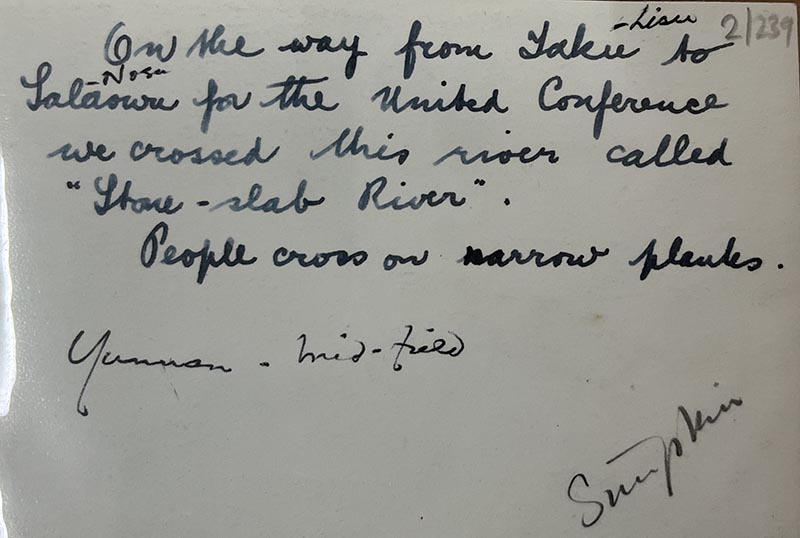 - Lisu 2/239
On the way from Taku to
- Nosu
Salaowu for the United Conference
we crossed this river called
"Stone-slab River".
People cross on narrow planks.
Yunnan - Mid-field
Simpkin